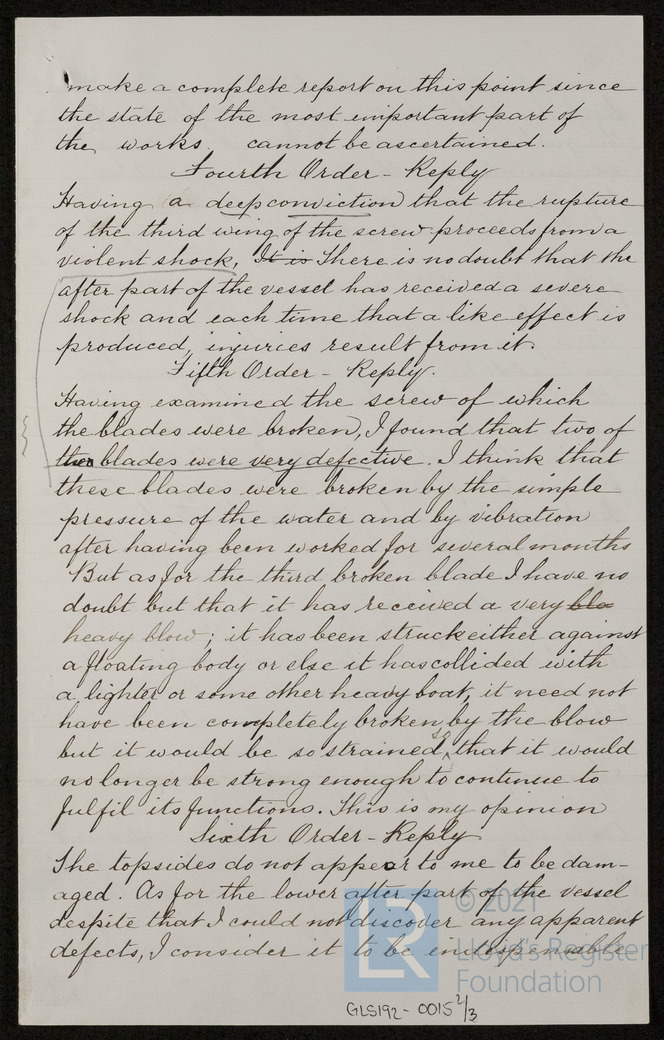 make a complete report on this point since
the state of the most important part of
the works cannot be ascertained.
Fourth Order - Reply
Having a deep conviction that the rupture
of the third wing of the screw proceeds from a
violent shock, It is There is no doubt that the
after part of the vessel has received a severe
shock and each time that a like effect is
produced, injuries result from it.
Fifth Order - Reply.
Having examined the screw of which
the blades were broken, I found that two of
the blades were very defective. I think that
these blades were broken by the simple
pressure of the water and by vibration
after having been worked for several months
But as for the third broken blade I have no
doubt but that it has received a very blo
heavy blow; it has been struck either against
a floating body or else it has collided with
a lighter or some other heavy boat, it need not
have been completely broken by the blow
but it would be so strained, so that it would
no longer be strong enough to continue to
fulfil its functions. This is my opinion
Sixth Order - Reply
The topsides do not appear to me to be dam-
aged. As for the lower after part of the vessel
despite that I could not discover any apparent
defects, I consider it to be indespensable
© 2021
LR
Lloyd's Register
Foundation
GLS192-0015 2/3